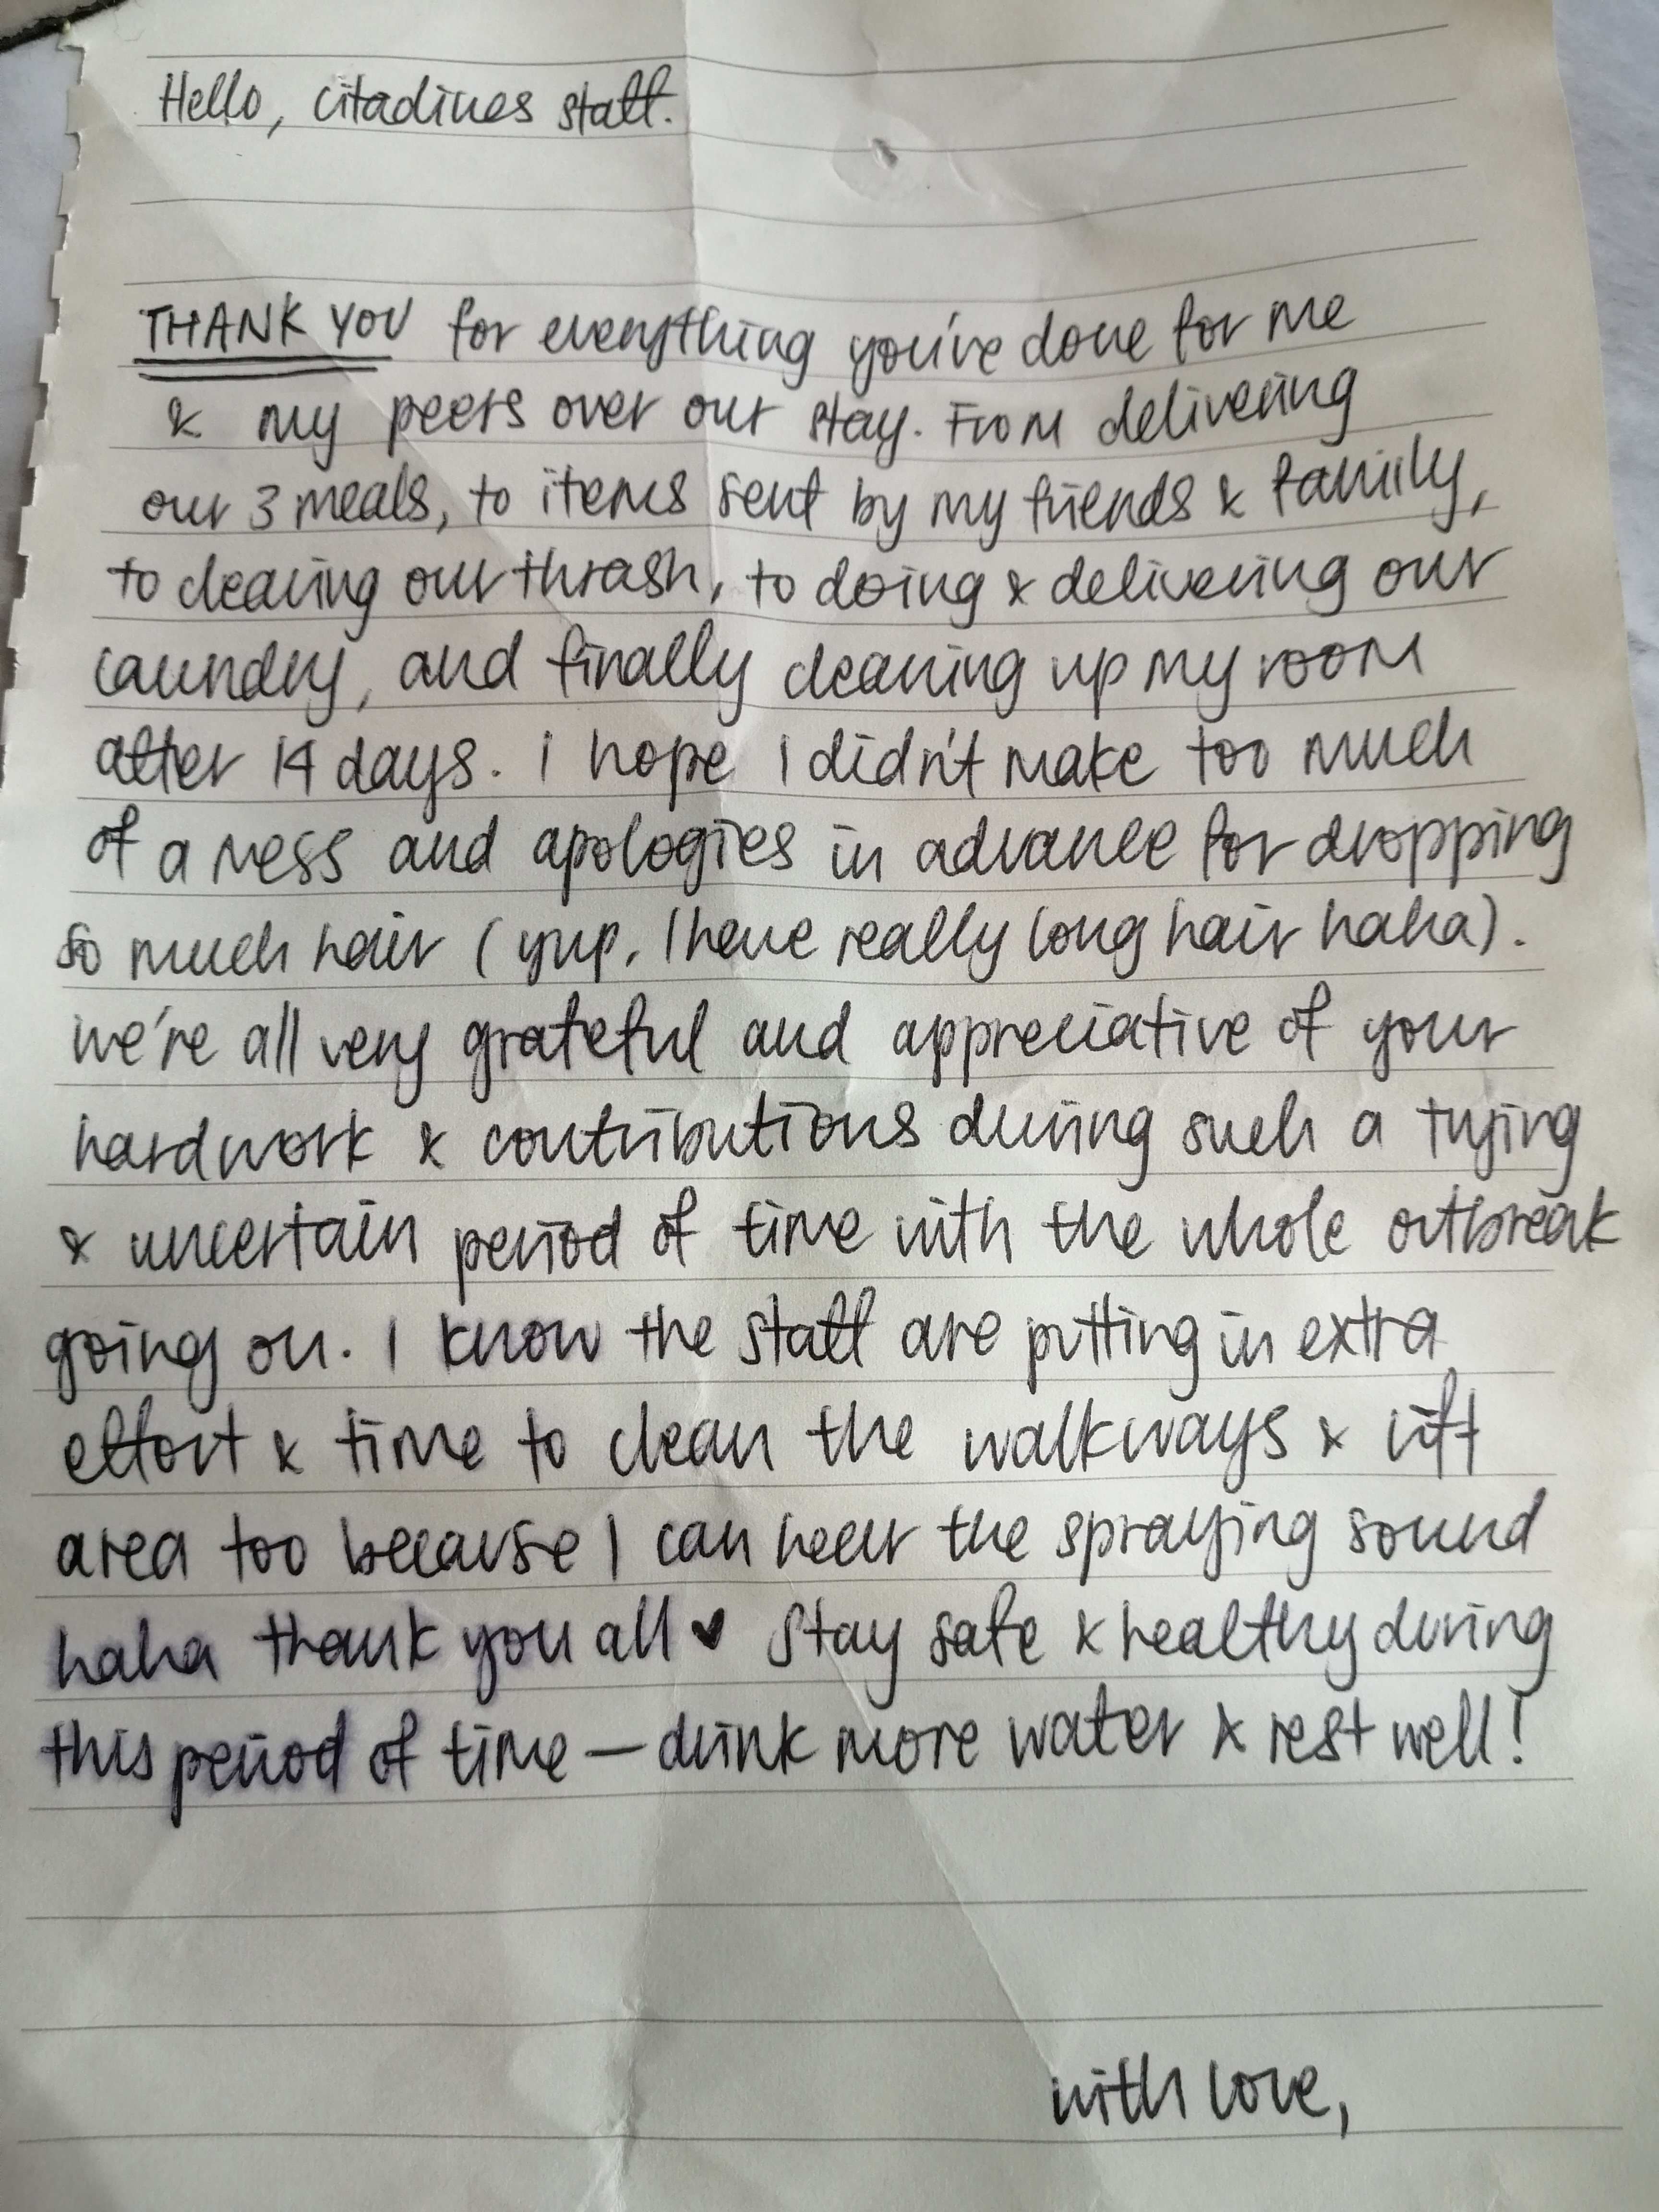 Hello, citadines staff.
THANK YOU for everything you've done for me
& my peers over our stay. From delivering
our 3 meals, to items sent by my friends & family,
to clearing our thrash, to doing & delivering our
laundry, and finally cleaning up my room
after 14 days. I hope I didn't make too much
of a mess and apologies in advance for dropping
so much hair (yup, I have really long hair haha).
we're all very grateful and appreciative of your
hardwork & contributions during such a trying
& uncertain period of time with the whole outbreak
going on. I know the staff are putting in extra
effort & time to clean the walkways & lift
area too because I can hear the spraying sound
haha thank you all ♥ Stay safe & healthy during
this period of time — drink more water & rest well!
with love,